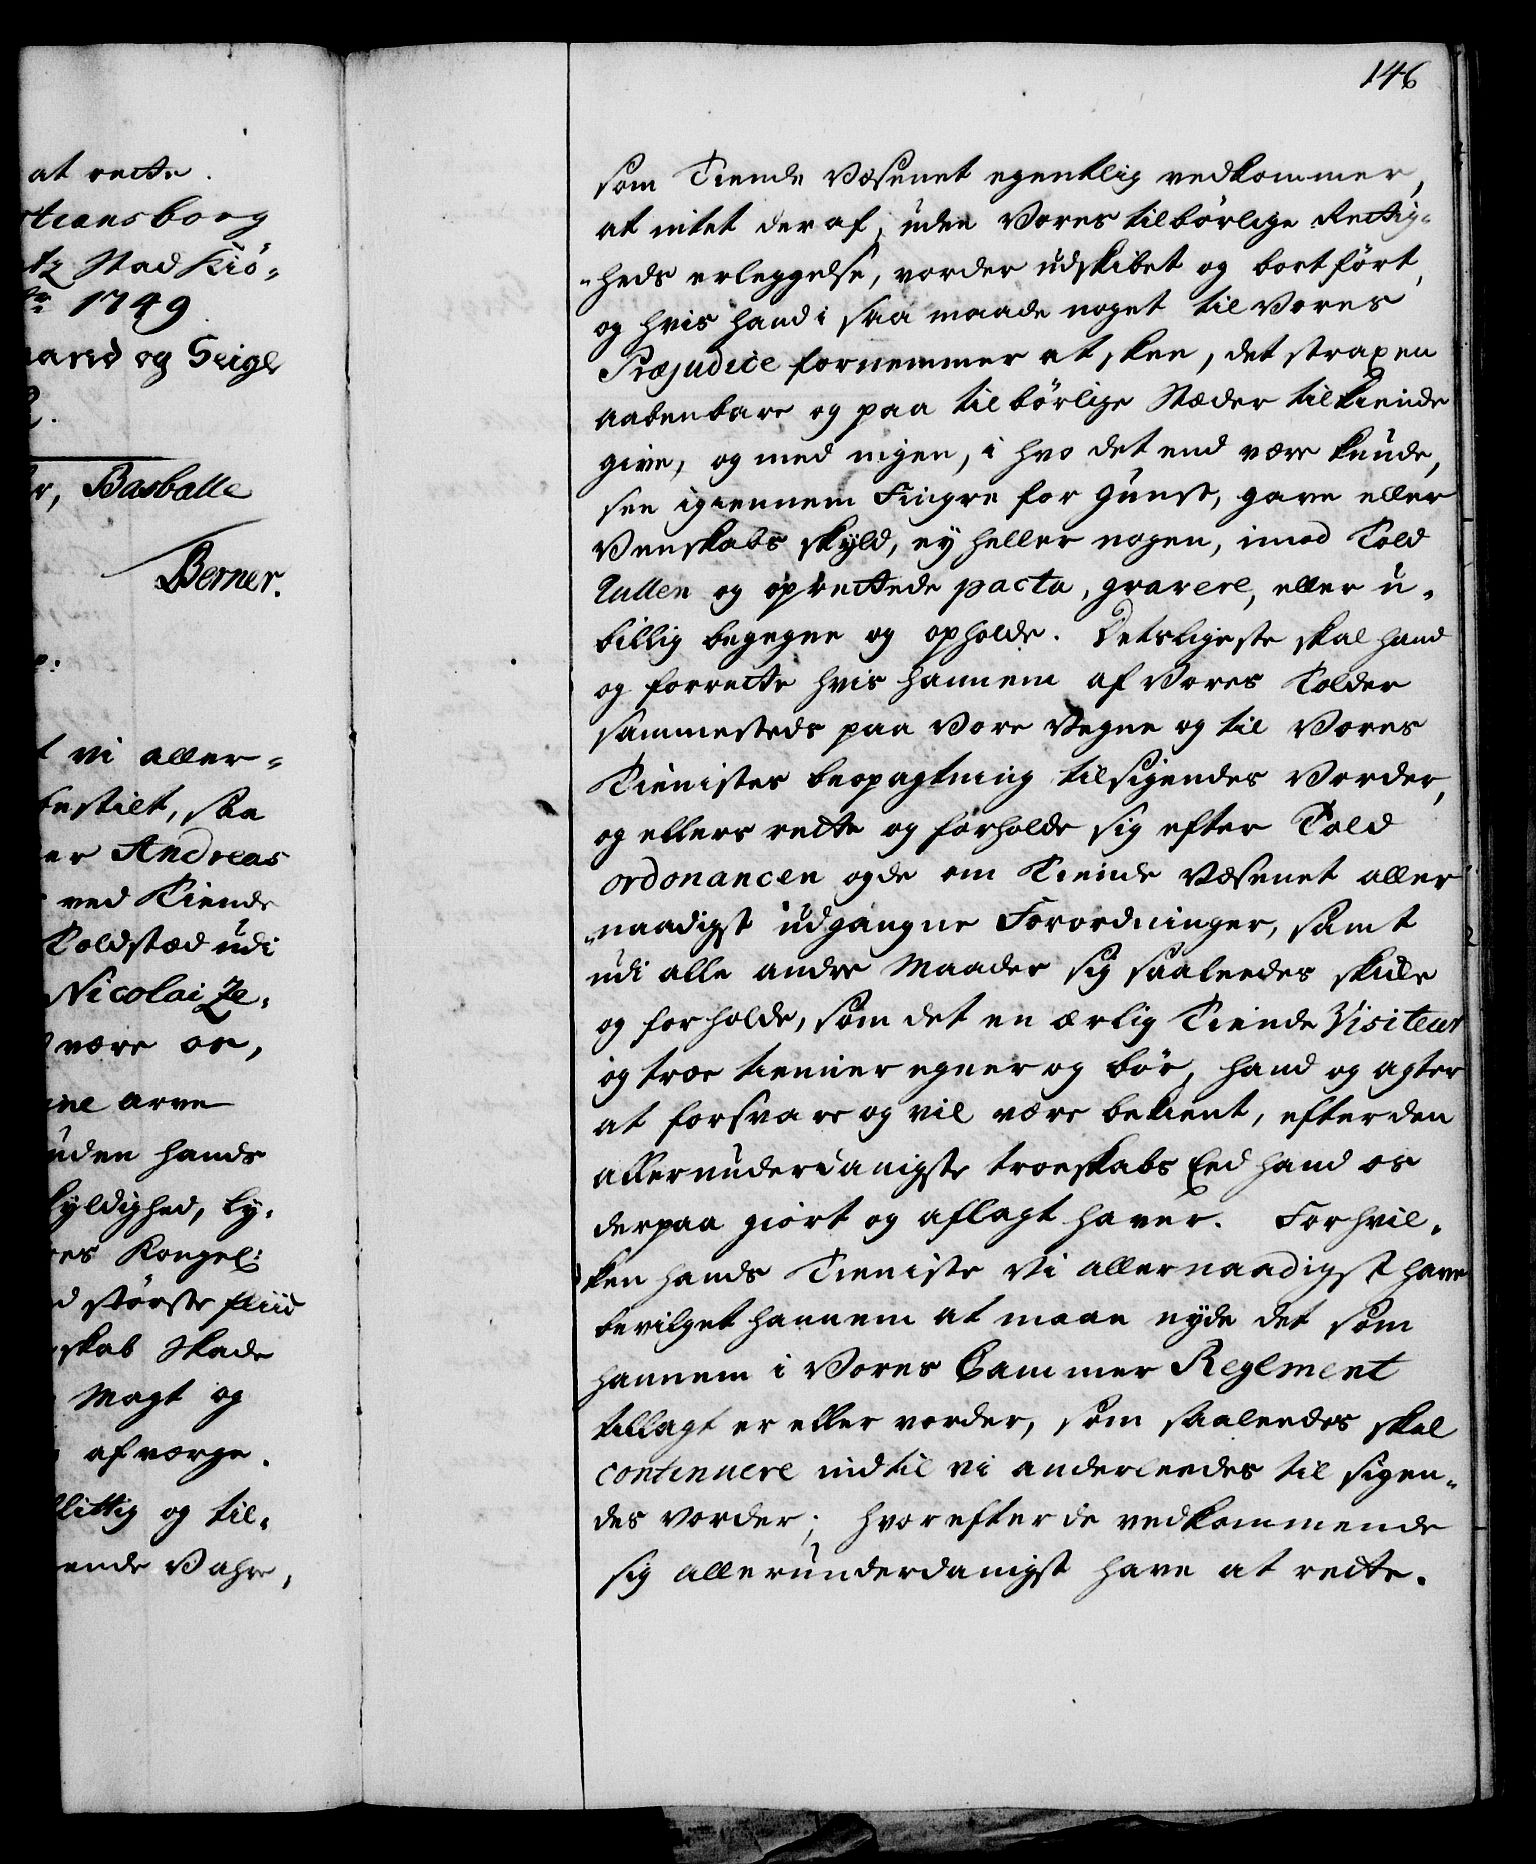 146
at rette.
tiansborg
Stad Kiö-
1749
og Seigl
Basballe
Berner.
vi aller-
bestilt, saa
er Andreas
ved Tiende
Toldstæd udi
Nicolai Ze-
være os,
arve
uden hands
kyldighed, ly-
es Kongel:
største fliid
skab Skade
Magt og
afværge.
flittig og til-
ende Vahre,
som Tiende Væsenet egentlig vedkommer,
at intet deraf, uden Vores tilbørlige Rettig-
heds erleggelse, vorder udskibet og bortført,
og hvis hand i saa maade noget til Vores
Præjudice fornemmer at skee, det straxen
aabenbare og paa tilbørlige Stæder tilkiende
give, og med ingen, i hvo det end være kunde,
see igiennem Fingre for Gunst, gave eller
Venskabs skyld, ey heller nogen, imod Told
Rullen og oprettede pacta, gravere, eller u-
billig begegne og opholde. Detsligeste skal hand
og forrette hvis hannem af Vores Tolder
sammesteds paa Vore Vegne og til Vores
Tienistes beopagtning tilsigendes Vorder,
og ellers rette og forholde sig efter Told
ordonancen og de om Tiende Væsenet aller
naadigst udgangne Forordninger, samt
udi alle andre Maader sig saaleedes skicke
og forholde, som det en ærlig Tiende Visiteur
og troe tienner egner og bör, hand og agter
at forsvare og vil være bekient, efter den
allerunderdanigste troeskabs Eed hand os
derpaa giort og aflagt haver. For hvil-
ken hands Tieniste Vi allernaadigst have
bevilget hannem at maae nyde det som
hannem i Vores Cammer Reglement
tillagt er eller vorder, som saaleedes skal
continuere indtil vi anderleedes til sigen-
des vorder; hvorefter de vedkommende
sig allerunderdanigst have at rette.